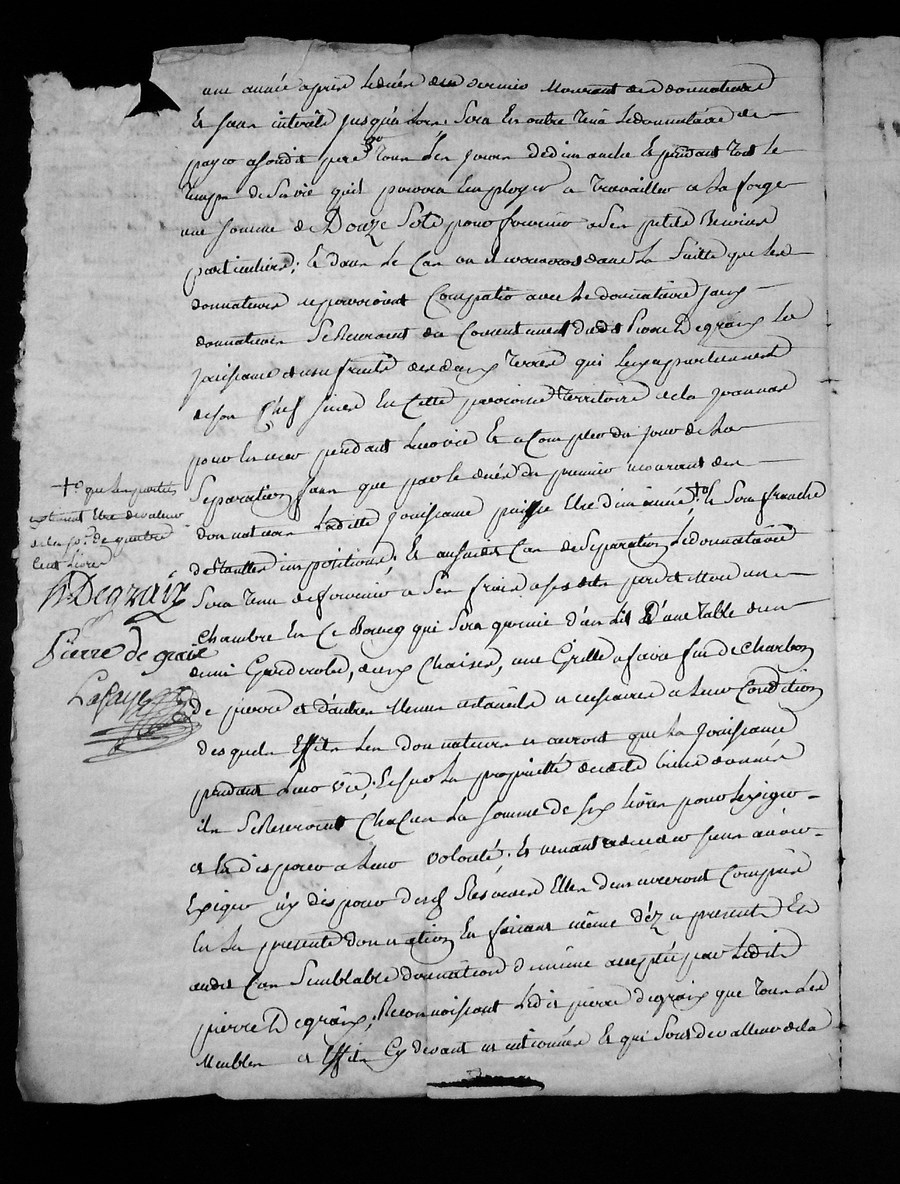 une année après le décès du dernier mourant des donnateurs
Et sans interêts jusqu'a lors. Sera En outre tenu le donnataire de
payer a sondit pere tous les jours de dimanche Et pendant tout le
temps de sa vie qu'il pourra Employer a travailler a la forge
une somme de Douze sols pour fournir a ses petits Besoins
particuliers; Et dans le Cas ou il arriveroit dans la Suitte que les
donnateurs ne pourroient Compatir avec le donnataire
donnateurs se Reservent du Consentement dudit Pierre Degraix la
jouissance et usufruit des deux terres qui luy appartiennent
de son Chef sises En Cette paroisse Territoire de la
pour En jouir pendant leur vie Et a Compter du jour de la
Separation sans que par le décès du premier mourant des
donnateurs Ladite jouissance puisse Etre diminuée † Et Sera franche
de toutes impositions; Et audit Cas de Separation Le donnataire
Sera tenu de fournir a Ses frais a sesdits pere et Mere une
Chambre En Ce Bourg qui Sera garnie d'un lit d'une table d'un
demi Garderobe, deux Chaises, une Grille a faire feu de Charbon
de pierre et d'autres Menus ustancils necessaires a leur Condition
desquels Effets Les donnateurs n'auront que la jouissance
pendant leur vie; Et sur la propriété desdits biens donnés
ils se Reservent Chacun la somme de six livres pour l'exiger
et En disposer a leur volonté. Et venant a deceder sans avoir
Exigé n'y disposé desd. Réserves Elles demeureront Comprises
En La presente donnation En faisant même dèz a present Et
audit Cas Semblable donnation de même acceptée par Ledit
pierre Degraix, Reconnoissant Ledit pierre degraix que tous Les
Meubles et Effets Cy devant mentionnés Et qui Sont de valleur de la
† que les parties
ont dit Etre de valeur
de la so.e de quatre
Cent livres
Degraix
Pierre de graix
Lafaye